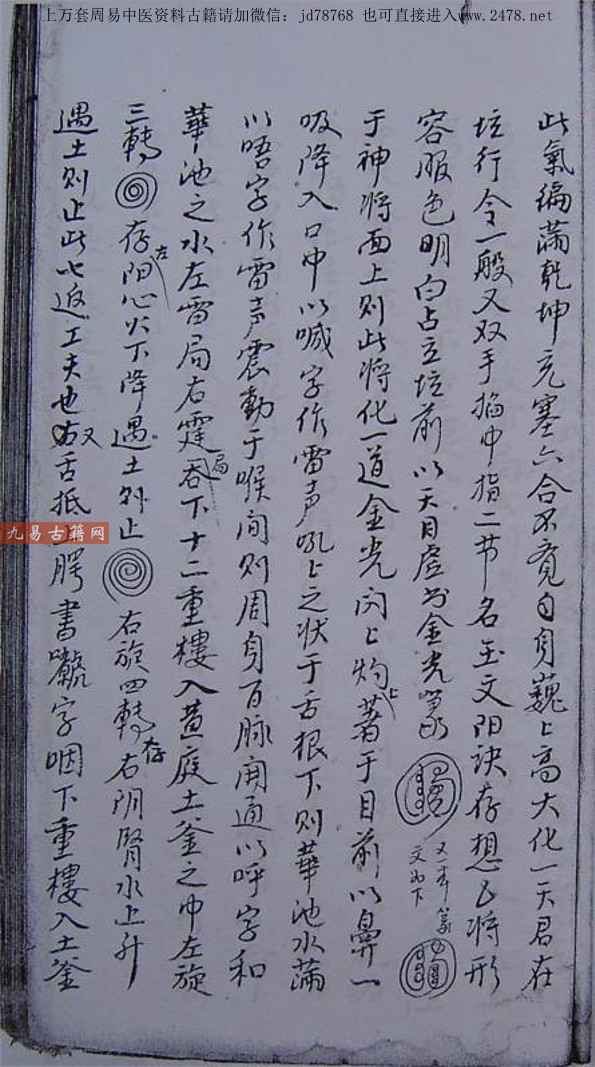 上万套周易中医资料古籍请加微信：jd78768 也可直接进入www.2478.net
此氣徧蓾乾坤充塞六合不覔自身巍〻高大化一天君在
坛行令一般又双手掐中指二节名玉文阳诀存想召将形
容服色明白占立坛前以天目虚书金光篆
又一本篆
文如下
于神将面上则此将化一道金光闪〻灼〻著于目前以鼻一
吸降入口中以喊字作雷声吼〻之状于舌根下则華池水蓾
以唔字作雷声震動于喉间则周身百脉闶通以呼字和
華池之水左雷局右霆局吞下十二重樓入黄庭土釜之中左旋
三轉 存左阳心火下降遇土则止 右旋四轉存右阴腎水上升
遇土则止此七返工夫也又舌抵 腭書 字咽下重樓入土釜
九易古籍网